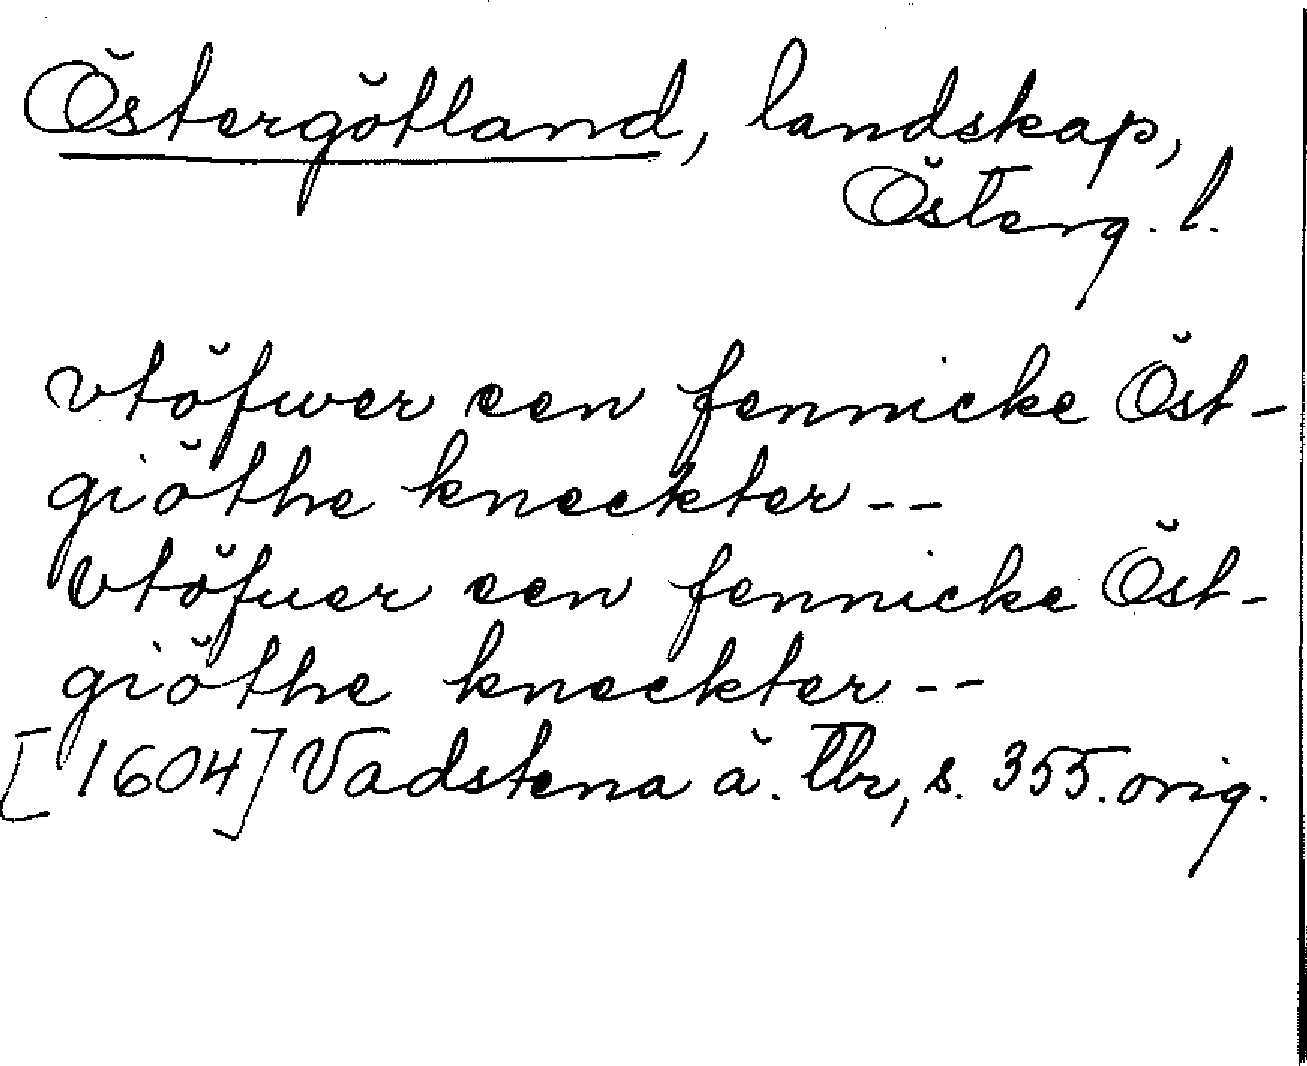 Östergötland, landskap,
Österg. l.
vtöfwer een fennicke Öst-
giöthe kneckter --
vtöfuer een fennicke Öst-
giöthe kneckter --
[1604] Vadstena ä. tbr, s. 355. orig.